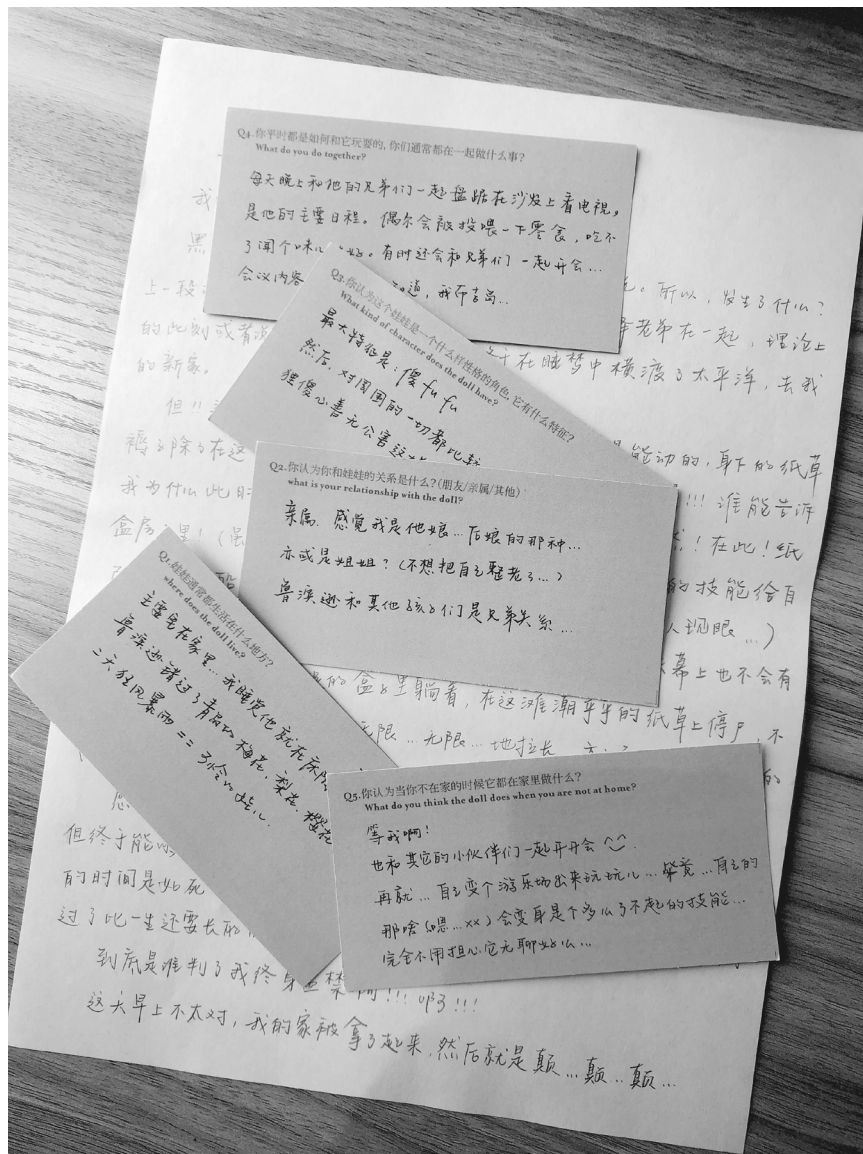 Q4.你平时都是如何和它玩耍的, 你们通常都在一起做什么事?
What do you do together?
每天晚上和他的兄弟们一起盘踞在沙发上看电视。
是他的主要日程。偶尔会被投喂一下零食，吃不
了闻个味儿 好。有时还会和兄弟们一起开会…
会议内容 知道，我布吉岛…
Q3.你认为这个娃娃是一个什么样性格的角色, 它有什么特征?
What kind of character does the doll have?
最大特征是：傻fufu
然后，对周围的一切都比较
傻心善无公害
Q2.你认为你和娃娃的关系是什么?(朋友/亲属/其他)
what is your relationship with the doll?
亲属. 感觉我是他娘…后娘的那种…
亦或是姐姐？(不想把自己整老了…)
鲁滨逊和其他孩子们是兄弟关系…
Q1.娃娃通常都生活在什么地方?
where does the doll live?
主要宅在家里…我睡觉他就在床
鲁滨逊错过了青岛的梅花.梨花.樱花
天狂风暴雨 == 可怜的娃儿
Q5.你认为当你不在家的时候它都在家里做什么?
What do you think the doll does when you are not at home?
等我啊！
也和其它的小伙伴们一起开开会
再就…自己变个游乐场出来玩玩儿…毕竟…自己的
那啥(嗯…xx)会变身是个多么了不起的技能…
完全不用担心它无聊什么…
我
黑
。所以，发生了什么？
上一段
老弟在一起，理论上
的此刻或者
在睡梦中横渡了太平洋，去我
的新家。
但!!
能动的，身下的纸草
褥子除了在这
!!! 谁能告诉
我为什么此时
！在此！纸
盒房 里！(虽
的技能给自
人现眼…)
幕上也不会有
的盒子里躺着，在这滩潮乎乎的纸草上停尸，不
无限…无限…地拉长
的
但终于能
的时间是如死
过了此一生还要长
到底是谁判了我终身监禁 !!! 啊!!!
这天早上不太对，我的家被拿了起来.然后就是颠…颠…颠…